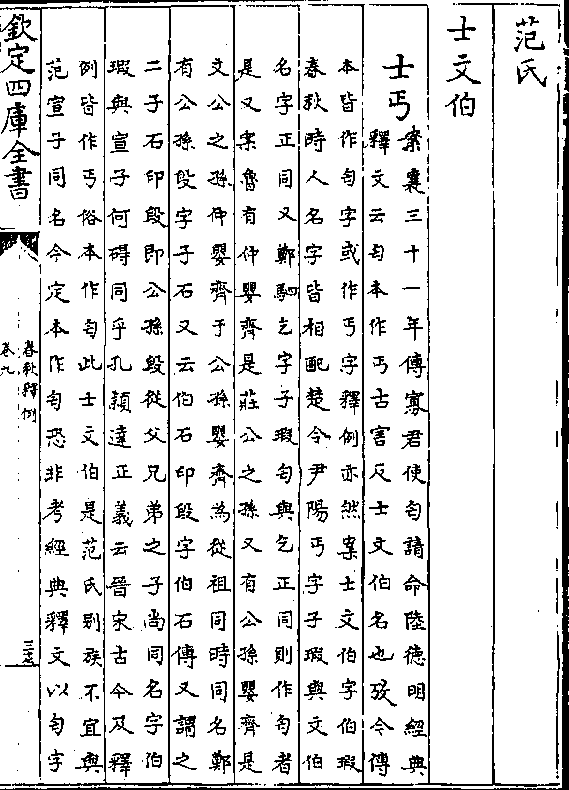 范氏
士文伯
士丐
案襄三十一年傳寡君使匄請命陸德明經典
釋文云匄本作丐古害反士文伯名也攷今傳
本皆作匄字或作丐字釋例亦然案士文伯字伯瑕
春秋時人名字皆相配楚令尹陽丐字子瑕與文伯
名字正同又鄭駟乞字子瑕匄與乞正同則作匄者
是又案魯有仲嬰齊是莊公之孫又有公孫嬰齊是
文公之孫仲嬰齊于公孫嬰齊為從祖同時同名鄭
有公孫段字子石又云伯石印段字伯石傳又謂之
二子石印段即公孫段從父兄弟之子尚同名字伯
瑕與宣子何碍同乎孔頴達正義云晉宋古今及釋
例皆作丐俗本作匄此士文伯是范氏别族不宜與
范宣子同名今定本作匄恐非考經典釋文以匄字
欽定四庫全書
春秋釋例
卷九